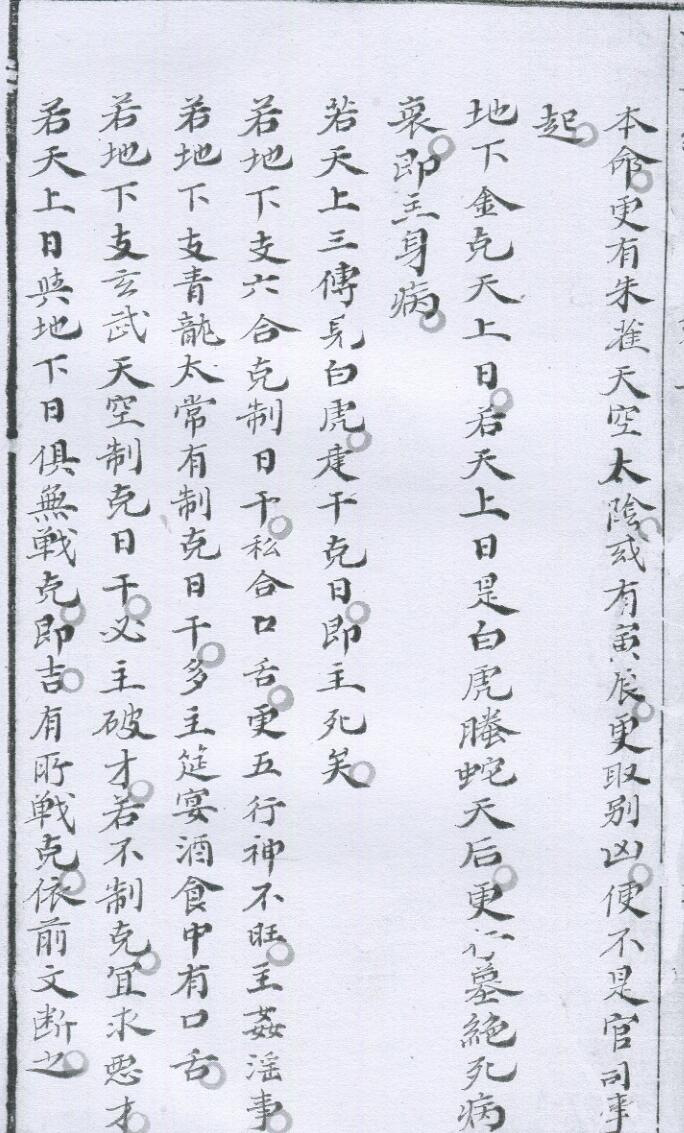 本命更有朱雀天空太陰或有寅辰更取别凶便不是官司事
起
地下金克天上日若天上日是白虎螣蛇天后更行墓絶死病
衰即主身病
若天上三傳見白虎建干克日即主死矣
若地下支六合克制日干私合口舌更五行神不旺主姦淫事
若地下支青龍太常有制克日干多主筵宴酒食中有口舌
若地下支玄武天空制克日干必主破才若不制克宜求惡才
若天上日與地下日俱無戦克即吉有所戦克依前文断之